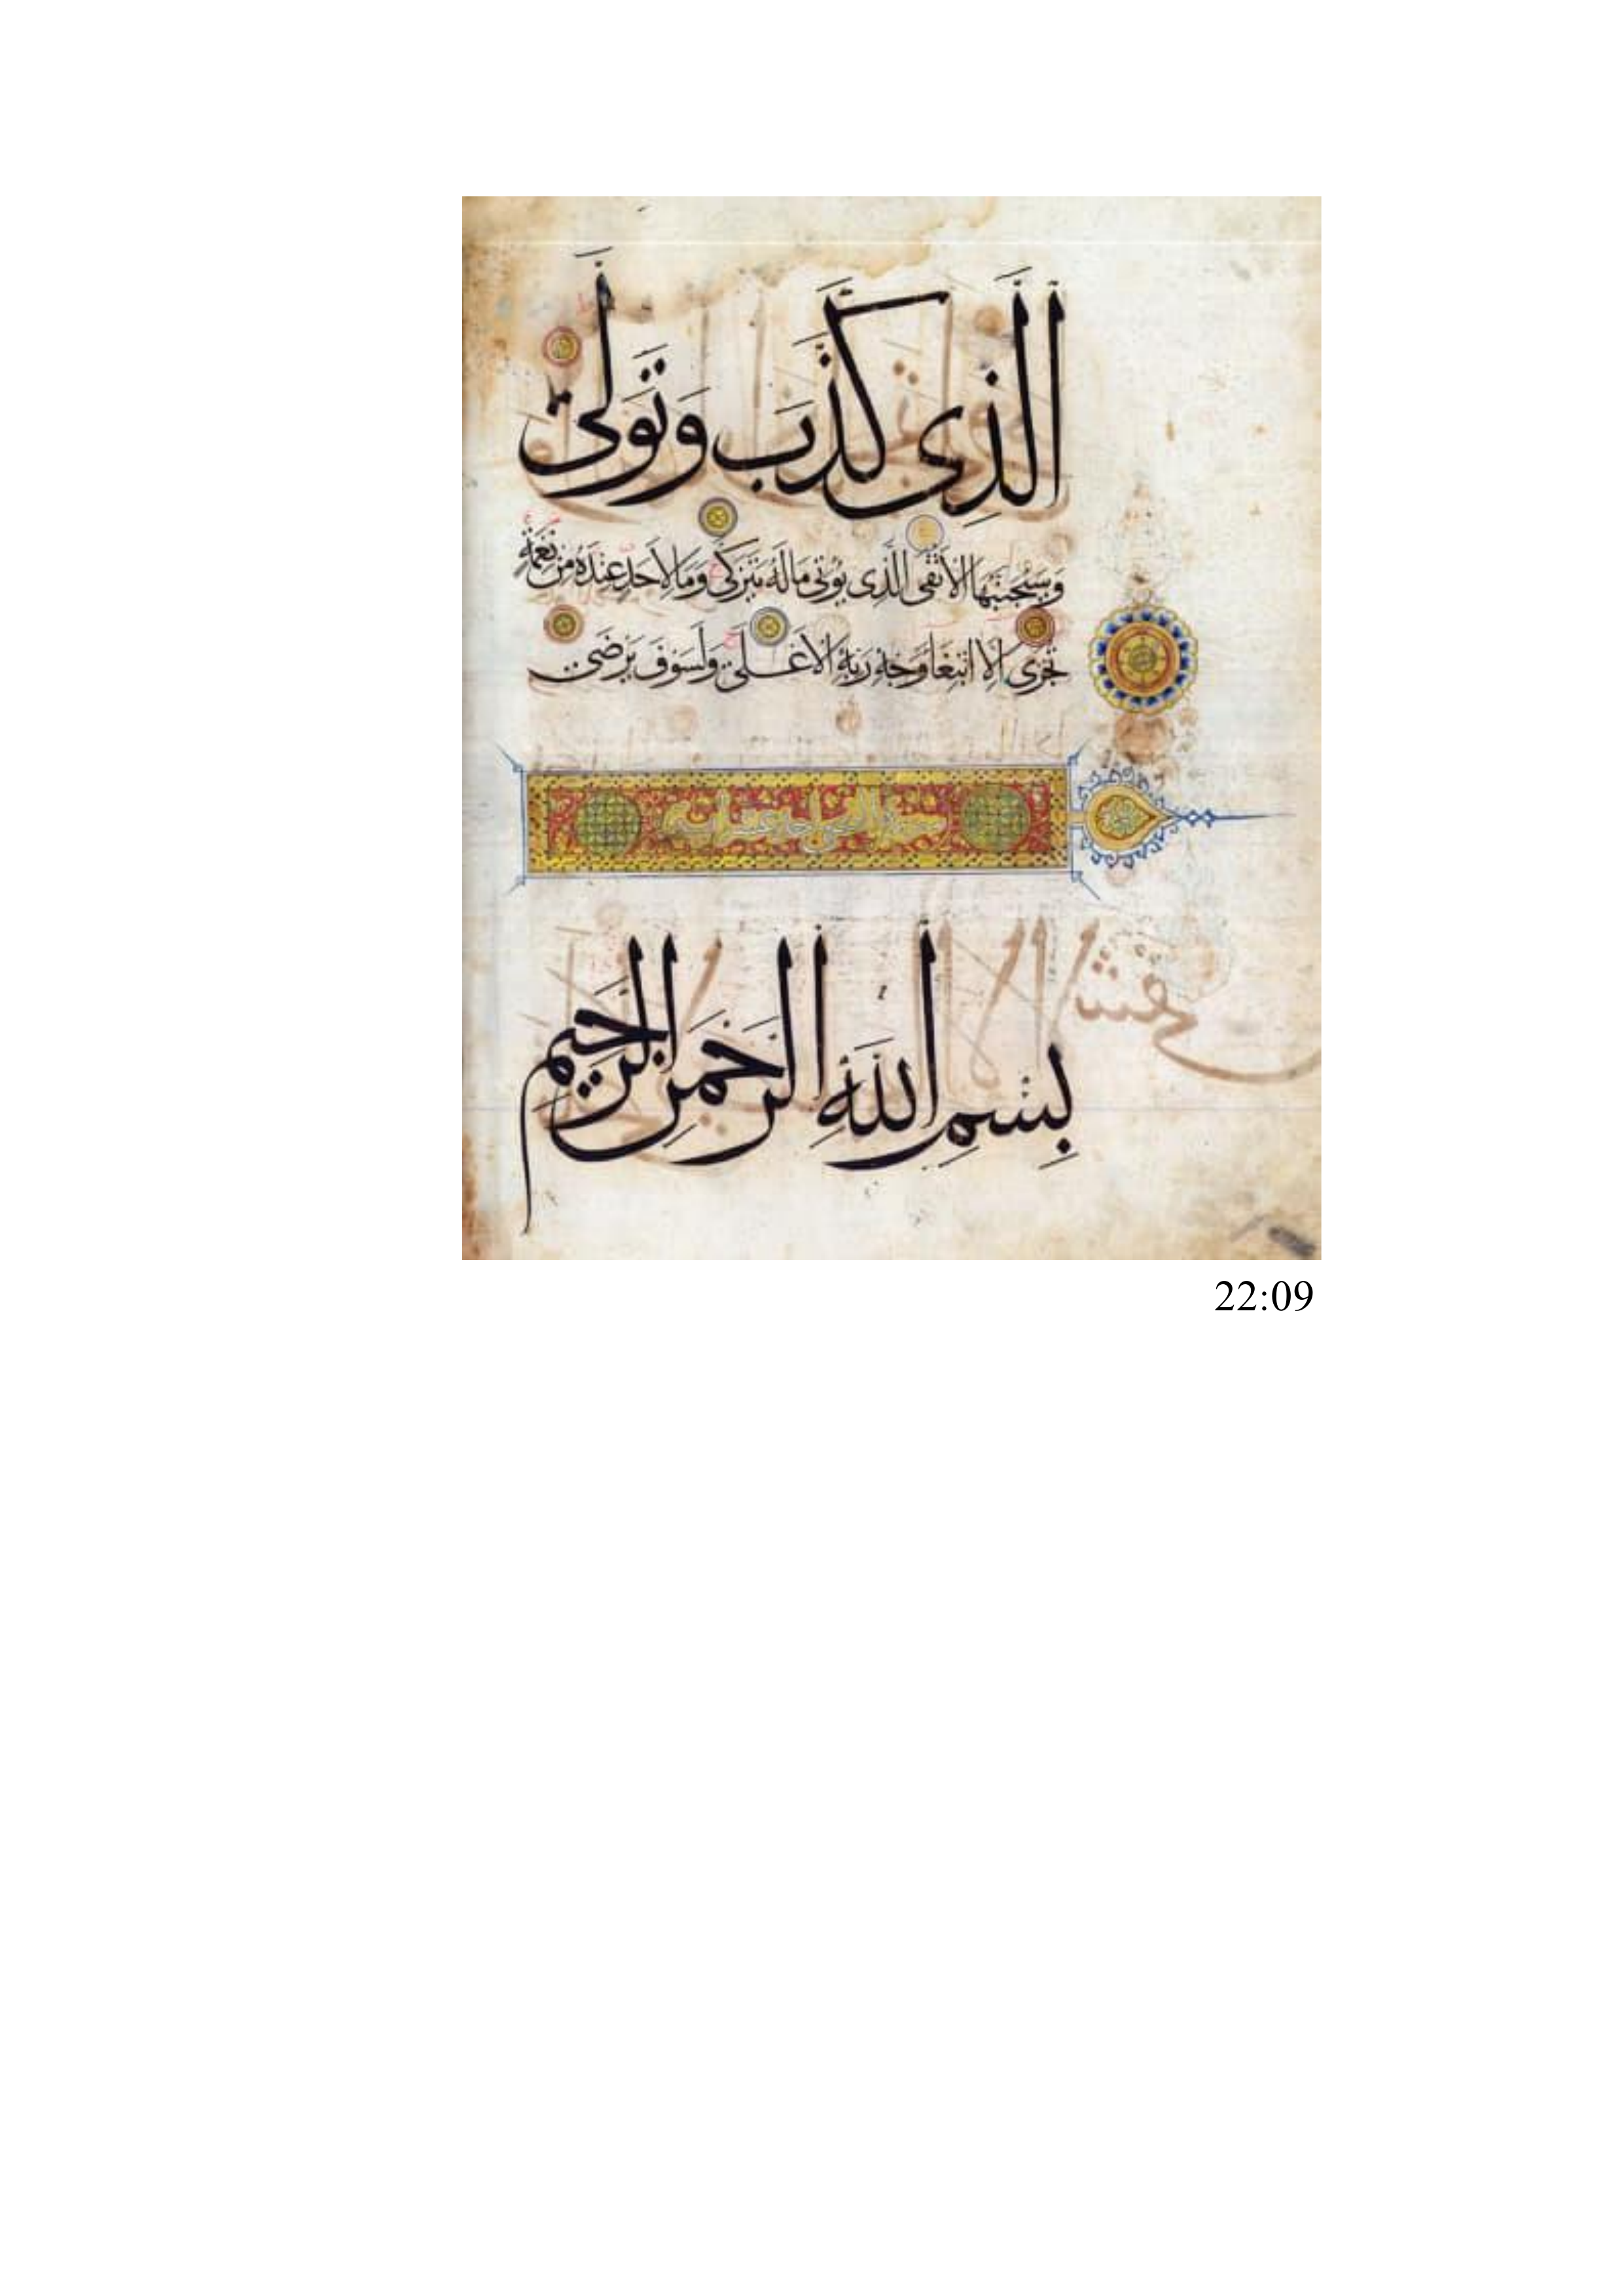 الَّذِى كَذَّبَ وَتَوَلَّى
وَسَيُجَنَّبُهَا الْأَتْقَى الَّذِى يُؤْتِى مَالَهُ يَتَزَكَّى وَمَا لِأَحَدٍ عِنْدَهُ مِنْ نِعْمَةٍ
تُجْزَى إِلَّا ابْتِغَاءَ وَجْهِ رَبِّهِ الْأَعْلَى وَلَسَوْفَ يَرْضَى
سورة الضحى احدى عشر اية
بِسْمِ اللَّهِ الرَّحْمَنِ الرَّحِيمِ
22:09